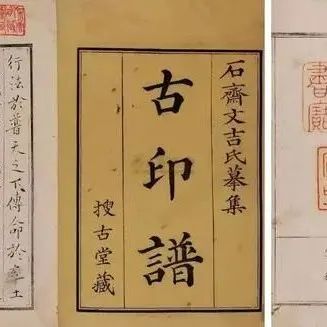 石齋文吉氏摹集
古印譜
搜古堂藏
行法於普天之下傳命於率土